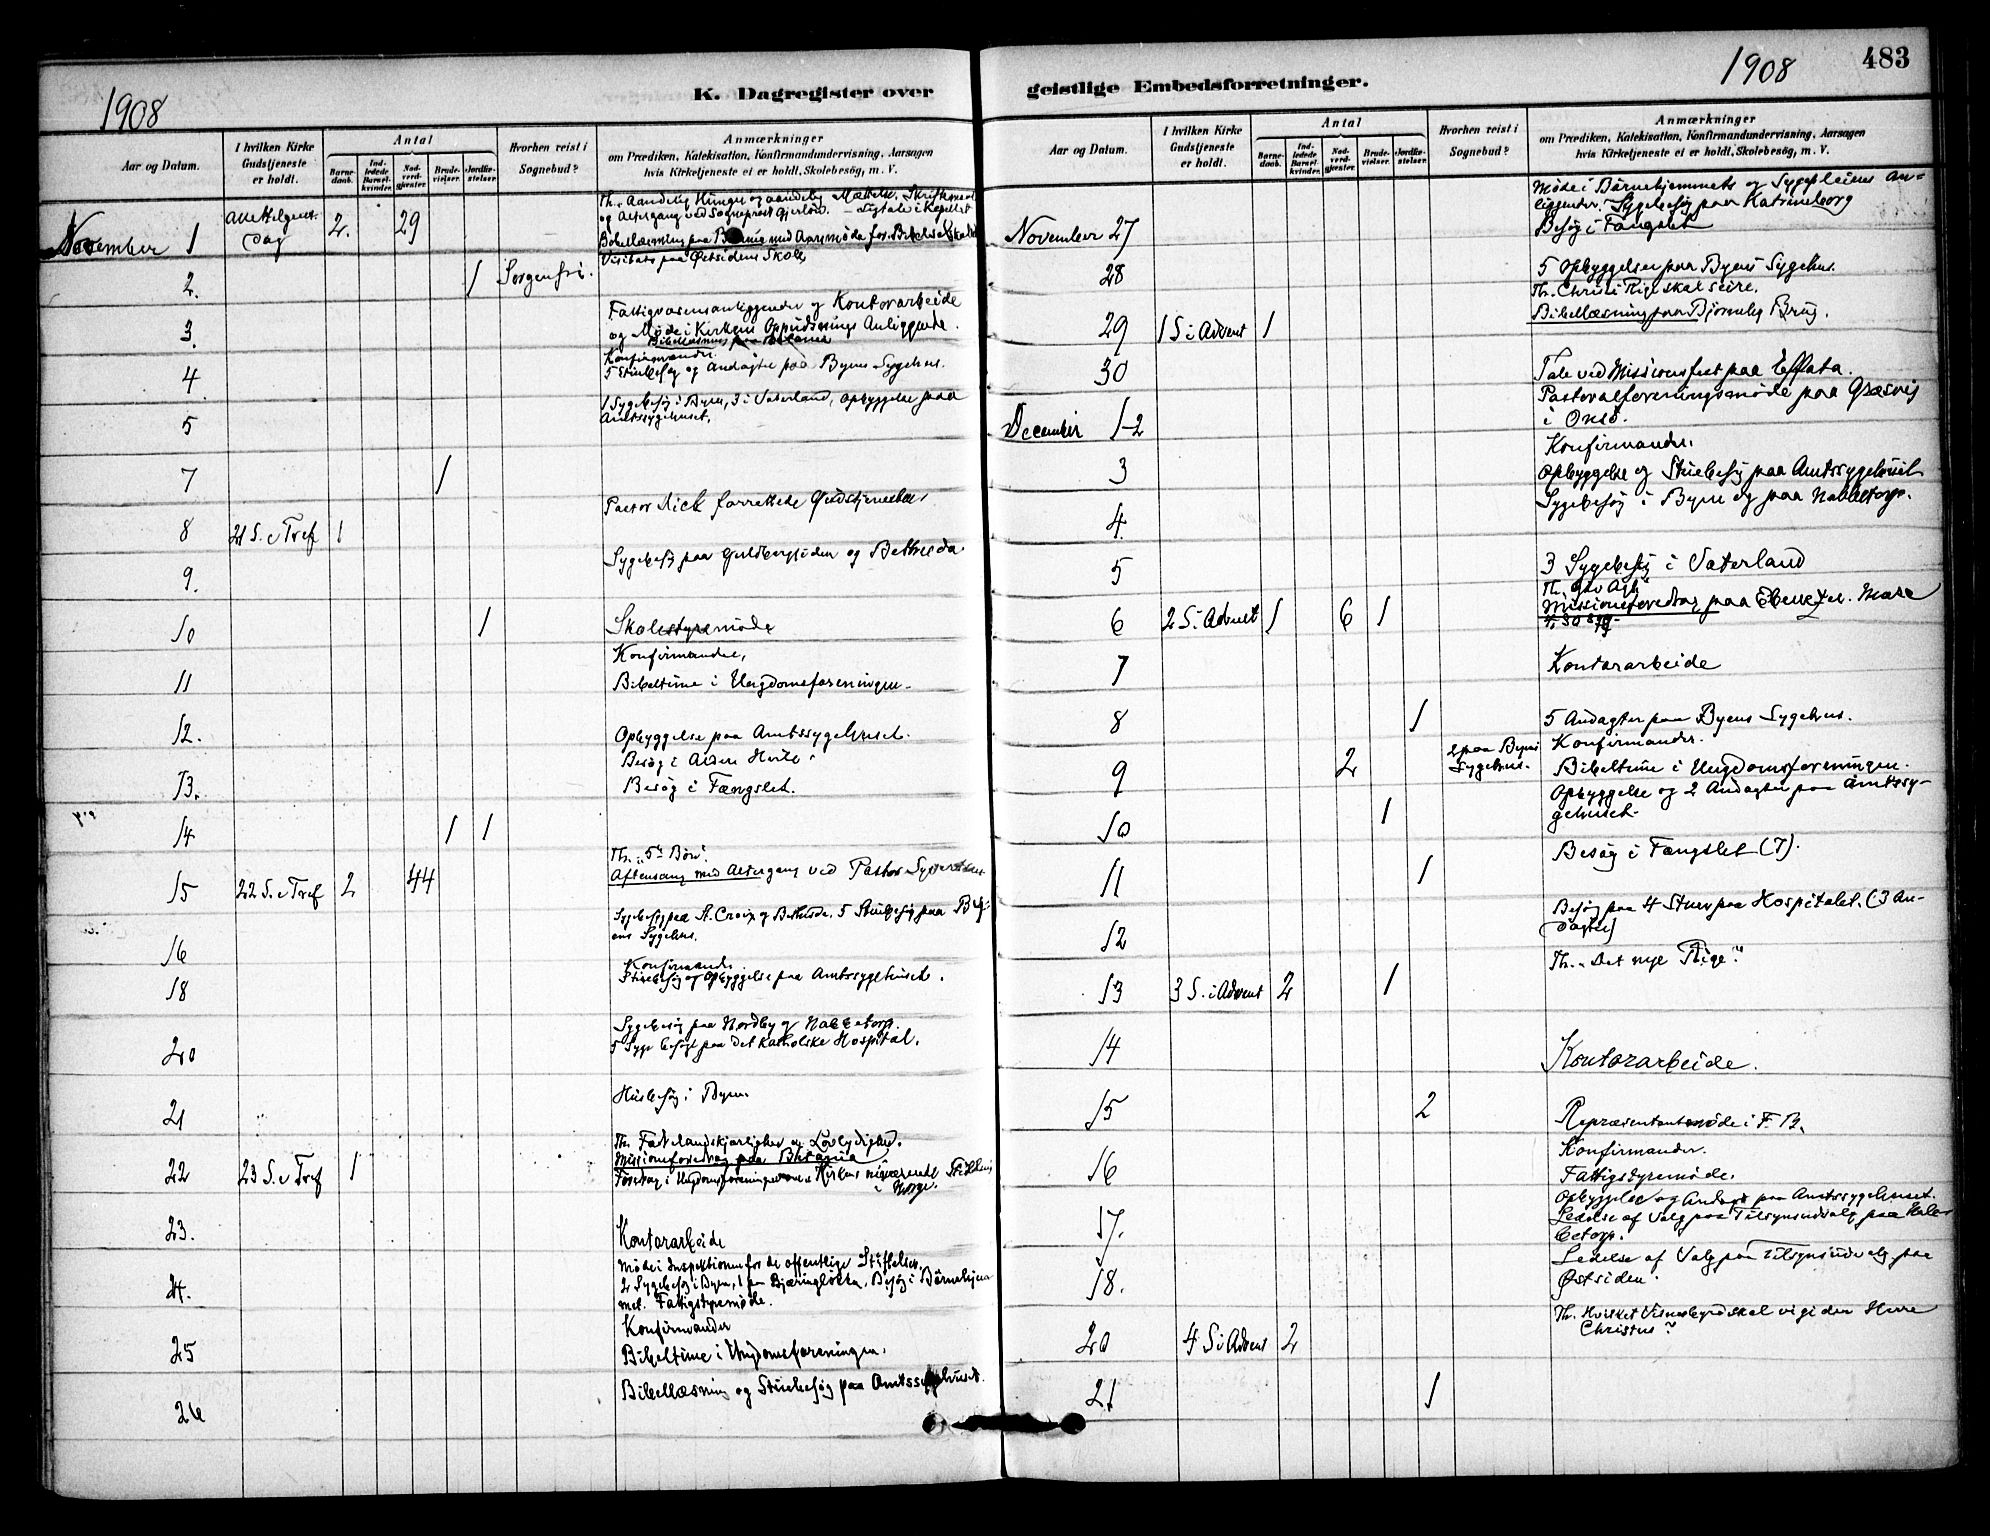 1908
K. Dagregister over
Aar og Datum.
I hvilken Kirke Gudstjeneste er holdt.
Antal
Barne-daab.
Ind-ledede Barsel-kvinder.
Nad-verd-gjester.
Brude-vielser.
Jordfæ-stelser.
Hvorhen reist i Sognebud?
Anmærkninger
om Prædiken, Katekisation, Konfirmandundervisning, Aarsagen
hvis Kirketjeneste ei er holdt, Skolebesög, m. V.
Th. Aandelig Hunger og aandelig
og Altergang ved Sogneprest
November 1 Dag 2. 29
Bibellæsning paa med Aarsmøde for
Visitats paa Østsidens Skole
2. 1 Sorgenfri.
Fattigvæsensanliggender og Kontorarbeide
3. og Møde i Kirkens Anliggende.
Bibellæsning paa Betania
Konfirmander.
4. 5 Stuebesøg og Andagter paa Byens Sygehus.
1 Sygebesøg i Byen, 3 i Vaterland, Opbyggelse paa
5 Amtssygehuset.
7 1
Pastor forrettede Gudstjenesten
8 21 S. e Tref 1
Sygebesøg paa og Bethesda
9.
10 1 Skolestyremøde
Konfirmander,
11 Bibeltime i Ungdomsforeningen.
12. Opbyggelse paa Amtssygehuset.
Besøg i Hvile.
13. Besøg i Fængslet.
14 1 1
Th.
15 22 S. e Tref 2 44 Aftensang med Altergang ved Pastor
Sygebesøg paa St. Croix og Bethesda. 5 Stuebesøg paa By-
16 ens Sygehus.
Konfirmander
18 Stuebesøg og Opbyggelse paa Amtssygehuset.
Sygebesøg paa Nordby og Nabbetorp.
20 5 Syge besøgt paa det katholske Hospital.
21 Husbesøg i Byen.
Th. Fædrelandskjærlighed og Lovlydighed.
22 23 S. e Tref 1 Missionsforedrag paa Betania
Foredrag i Ungdomsforeningen Kirkens nuværende Stilling
i Norge.
23. Kontorarbeide
Møde i Inspektionen for de offentlige Stiftelser.
24. 2 Sygebesøg i Byen, 1 paa Bjæringløkka. Besøg i Børnehjem-
met. Fattigstyremøde.
Konfirmander
25 Bibeltime i Ungdomsforeningen.
26 Bibellæsning og Stuebesøg paa Amtssygehuset.
1908 483
geistlige Embedsforretninger.
Aar og Datum.
I hvilken Kirke Gudstjeneste er holdt.
Antal
Barne-daab.
Ind-ledede Barsel-kvinder.
Nad-verd-gjester.
Brude-vielser.
Jordfæ-stelser.
Hvorhen reist i Sognebud?
Anmærkninger
om Prædiken, Katekisation, Konfirmandundervisning, Aarsagen
hvis Kirketjeneste ei er holdt, Skolebesög, m. V.
Møde i Børnehjemmets og Sygepleiens An-
liggender. Sygebesøg paa Katrineborg
November 27 Besøg i Fængslet
28 5 Opbyggelser paa Byens Sygehus.
Th. Christi Rige skal seire.
29 1 S i Advent 1 Bibellæsning paa Bjørneby Brug.
30 Tale ved Missionsfest paa Effata.
Pastoralforeningsmøde paa Græsvig
December 1-2 i Onsø.
Konfirmander.
3 Opbyggelse og Stuebesøg paa Amtssygehuset
4. Sygebesøg i Byen og paa Nabbetorp.
5 3 Sygebesøg i Vaterland
Th. "Giv Agt"
6 2 S. i Advent 1 6 1 Missionsforedrag paa Ebenezer.
7 Kontorarbeide
8 1 5 Andagter paa Byens Sygehus.
Konfirmander.
9 2 2 paa Byens Sygehus. Bibeltime i Ungdomsforeningen.
Opbyggelse og 2 Andagter paa Amtssy-
10 1 gehuset.
11 1 Besøg i Fængslet (7).
Besøg paa 4 Stuer paa Hospitalet. (3 An-
12 dagter)
Th. "Det nye Rige."
13 3 S. i Advent 2 1
14 Kontorarbeide.
15 2 Repræsentantmøde i F. B.
Konfirmander.
16 Fattigstyremøde.
Opbyggelse og Andagt paa Amtssygehuset.
17. Ledelse af Valg paa Tilsynsudvalg paa Nab-
betorp.
Ledelse af Valg paa Tilsynsudvalg paa
18. Østsiden.
Th. Hvilket Vidnesbyrd skal vi gi den Herre
20 4 S i Advent 2 Christus?
21 1